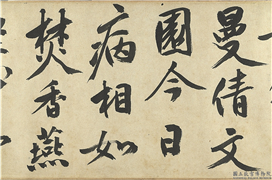 曼倩文
園今日
病相如
焚香燕
國立故宮博物院